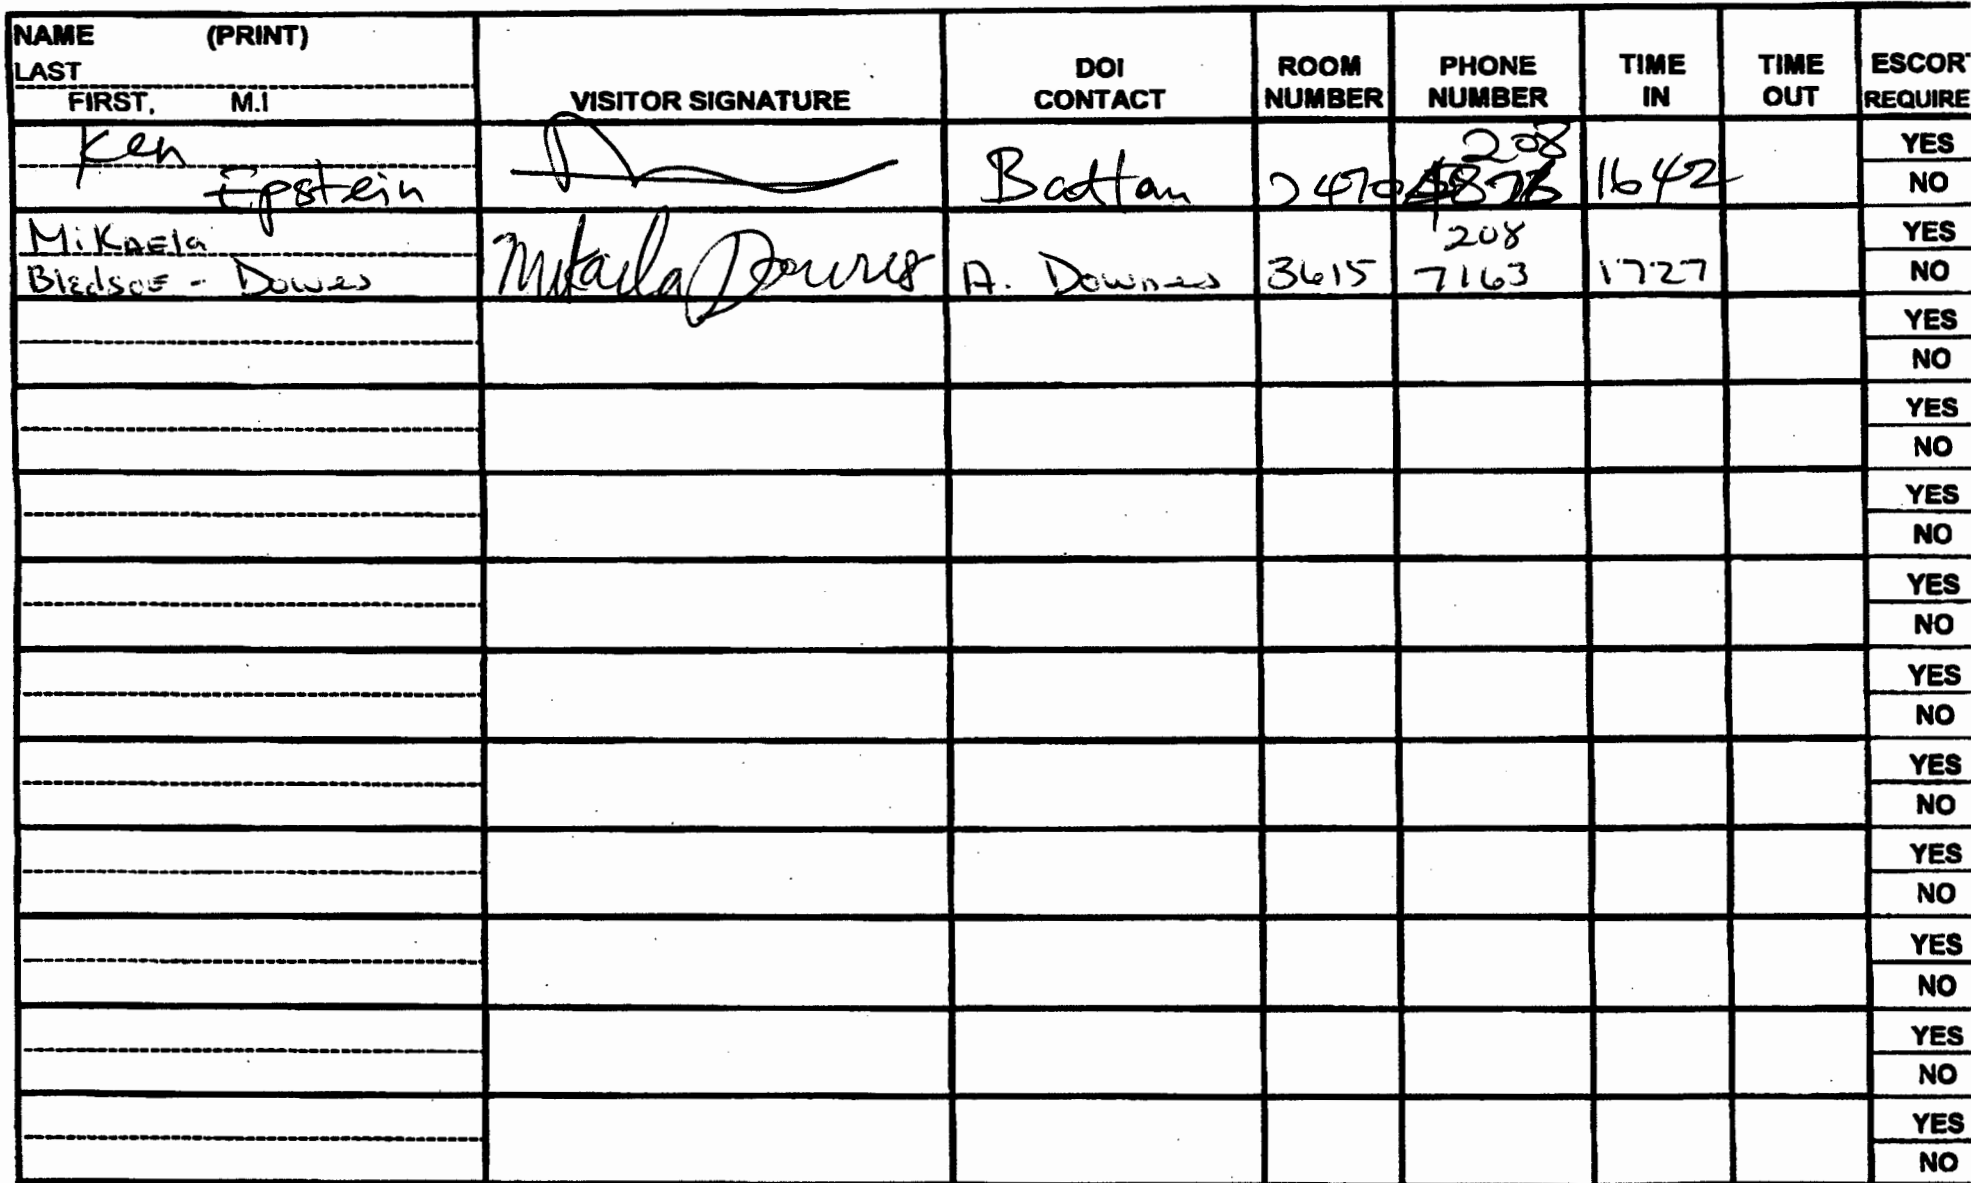 NAME (PRINT)
LAST
FIRST, M.I
VISITOR SIGNATURE
DOI
CONTACT
ROOM
NUMBER
PHONE
NUMBER
TIME
IN
TIME
OUT
ESCORT
REQUIRE
Ken
Epstein
Battan
2470
208
1642
YES
NO
Mikaela
Bledsoe - Dowes
Mikaela Downes
A. Downes
3615
208
7163
1727
YES
NO
YES
NO
YES
NO
YES
NO
YES
NO
YES
NO
YES
NO
YES
NO
YES
NO
YES
NO
YES
NO